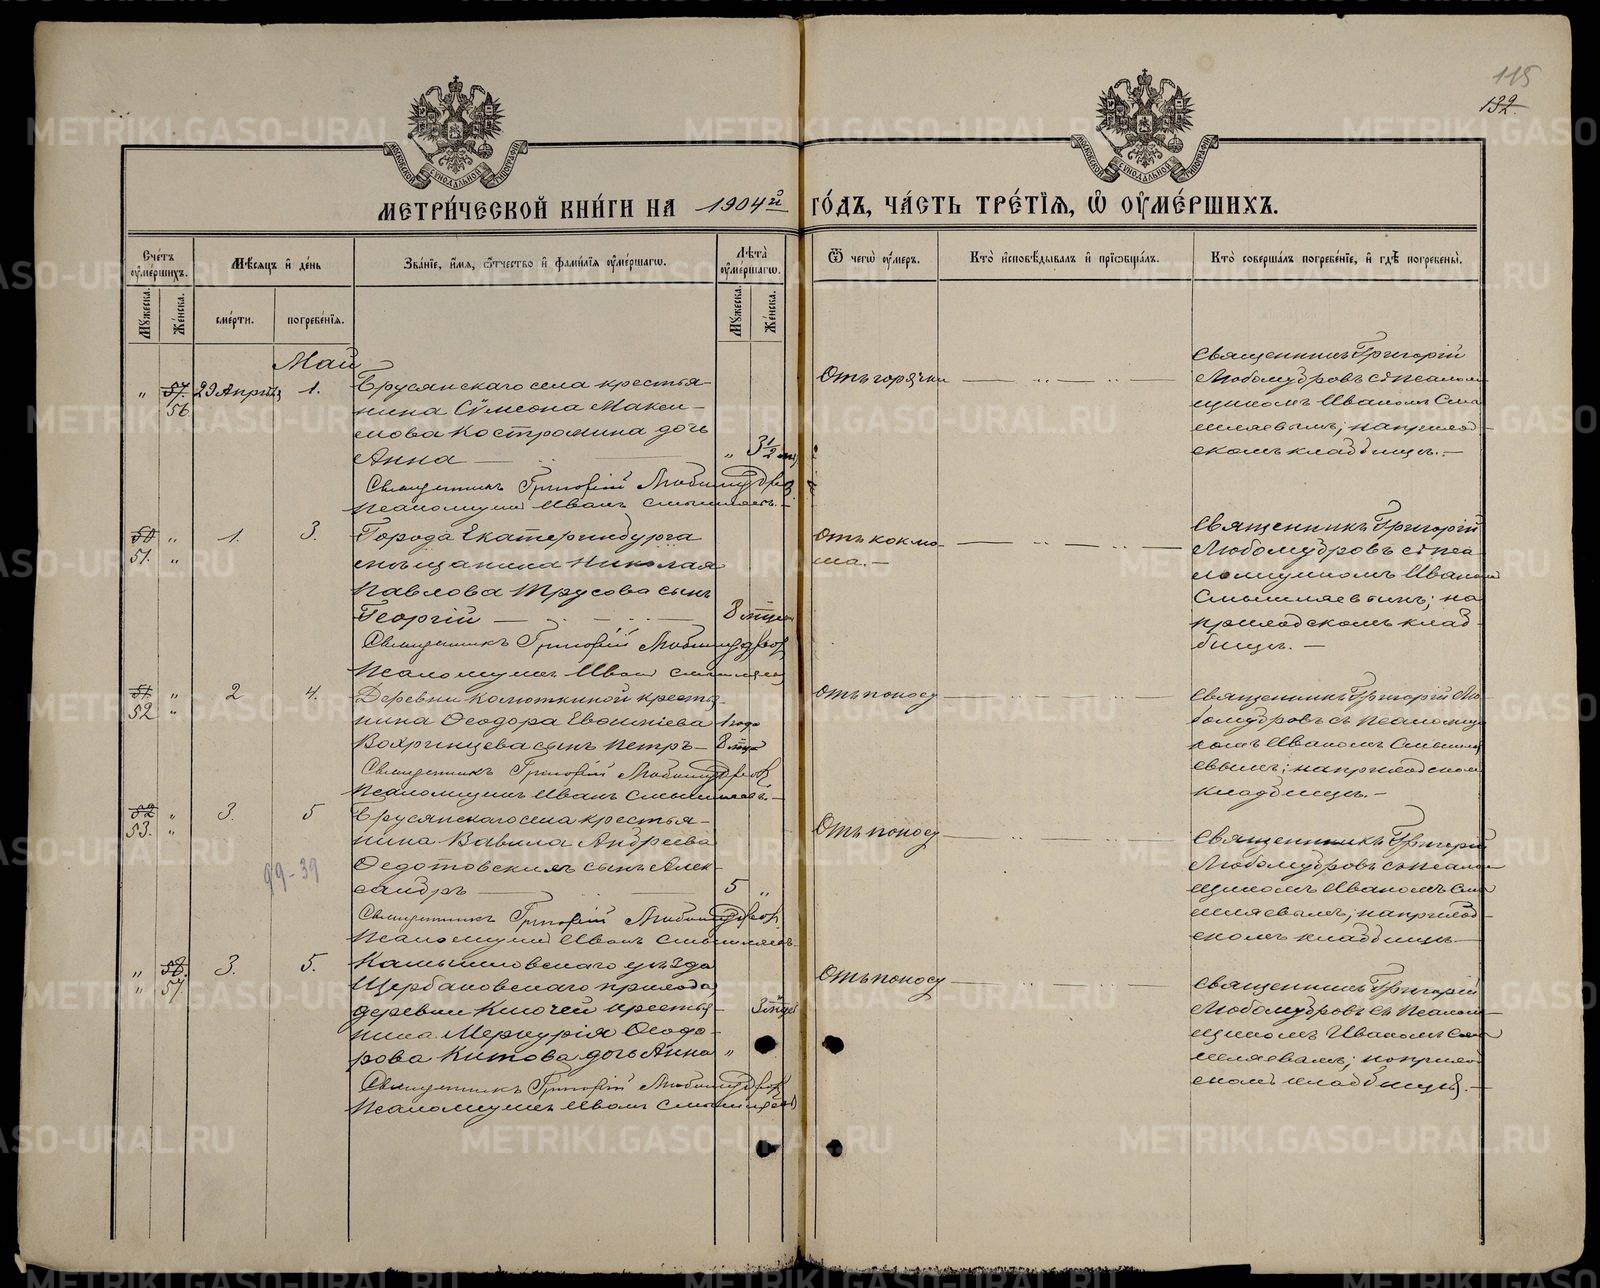 115
132.
МОСКОВСКОЙ СѴНОДАЛЬНОЙ ТИПОГРАФІИ
МОСКОВСКОЙ СѴНОДАЛЬНОЙ ТИПОГРАФІИ
МЕТРИ́ЧЕСКОЙ КНИ́ГИ НА 1904й ГО́ДЪ, ЧА́СТЬ ТРЕ́ТІЯ, Ѽ ОУ҆МЕ́РШИХЪ.
Сче́тъ оу҆ме́ршихъ.
Мѣ́сяцъ и҆ де́нь
Зва́ніе, и҆́мя, ѻ҆́тчество и҆ фами́лія оу҆ме́ршагѡ.
Лѣ́та оу҆ме́ршагѡ.
Ѿ чегѡ̀ оу҆́меръ.
Кто̀ и҆сповѣ́дывалъ и҆ прїѡбща́лъ.
Кто̀ соверша́лъ погребе́ніе, и҆ гдѣ̀ погребены̀.
Му́жеска.
Же́нска.
сме́рти.
погребе́нія.
Му́жеска.
Же́нска.
Май
" 57. 56 29 Апрѣля 1.
Брусянскаго села крестья-
нина Сѵмеона Макси-
мова Костромина дочь
Анна
" 3 1/2 мц
Священникъ Григорій Любомудровъ
Псаломщикъ Иванъ Смышляевъ.
Отъ горячки
Священникъ Григорій
Любомудровъ съ псалом-
щикомъ Иваномъ Смы
шляевымъ; на приход-
скомъ кладбищѣ.
50 "
51. "
1. 3.
Города Екатеринбурга
мѣщанина Николая
Павлова Трусова сынъ
Георгій
8 мцев
Священникъ Григорій Любомудров
Псаломщикъ Иван Смышляев
Отъ коклю-
ша.
Священникъ Григорій
Любомудровъ съ пса-
ломщикомъ Иваномъ
Смышляевымъ; на
приходскомъ клад-
бищѣ.
51 "
52 "
2 4.
Деревни Колюткиной крестья
нина Ѳеодора Евсигніева
Вохринцева сынъ Петръ
1 года
8 мца
Священникъ Григорій Любомудров
Псаломщикъ Иванъ Смышляевъ.
Отъ поносу
Священникъ Григорій Лю-
бомудровъ съ псаломщи
комъ Иваномъ Смышля
евымъ; на приходском
кладбищѣ.
52 "
53. "
3. 5
Брусянскаго села крестья-
нина Вавила Андреева
Ѳедотовскихъ сынъ Алек-
сандръ
5 "
Священникъ Григорій Любомудров.
Псаломщикъ Иванъ Смышляевъ.
99-39
Отъ поносу
Священникъ Григорій
Любомудровъ съ псалом
щикомъ Иваномъ Смы
шляевымъ; на приход-
скомъ кладбищѣ
" 58.
" 57.
3. 5.
Камышловскаго уѣзда
Щербаковскаго прихода
деревни Ключей крестья-
нина Меркурія Ѳеодо-
рова Китова дочь Анна
" 3 мцев
Священникъ Григорій Любомудров
Псаломщикъ Иванъ Смышляевъ
Отъ поносу
Священникъ Григорій
Любомудровъ съ псалом-
щикомъ Иваномъ Смы
шляевымъ; на приход
скомъ кладбищѣ.
METRIKI.GASO-URAL.RU